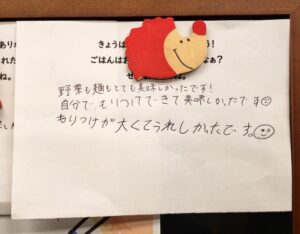 きょうは
ごはんはお
なぁ?
野菜も麺もとても美味しかったです!
自分で、もりつけできて美味しかったです
もりつけが大くてうれしかったです。